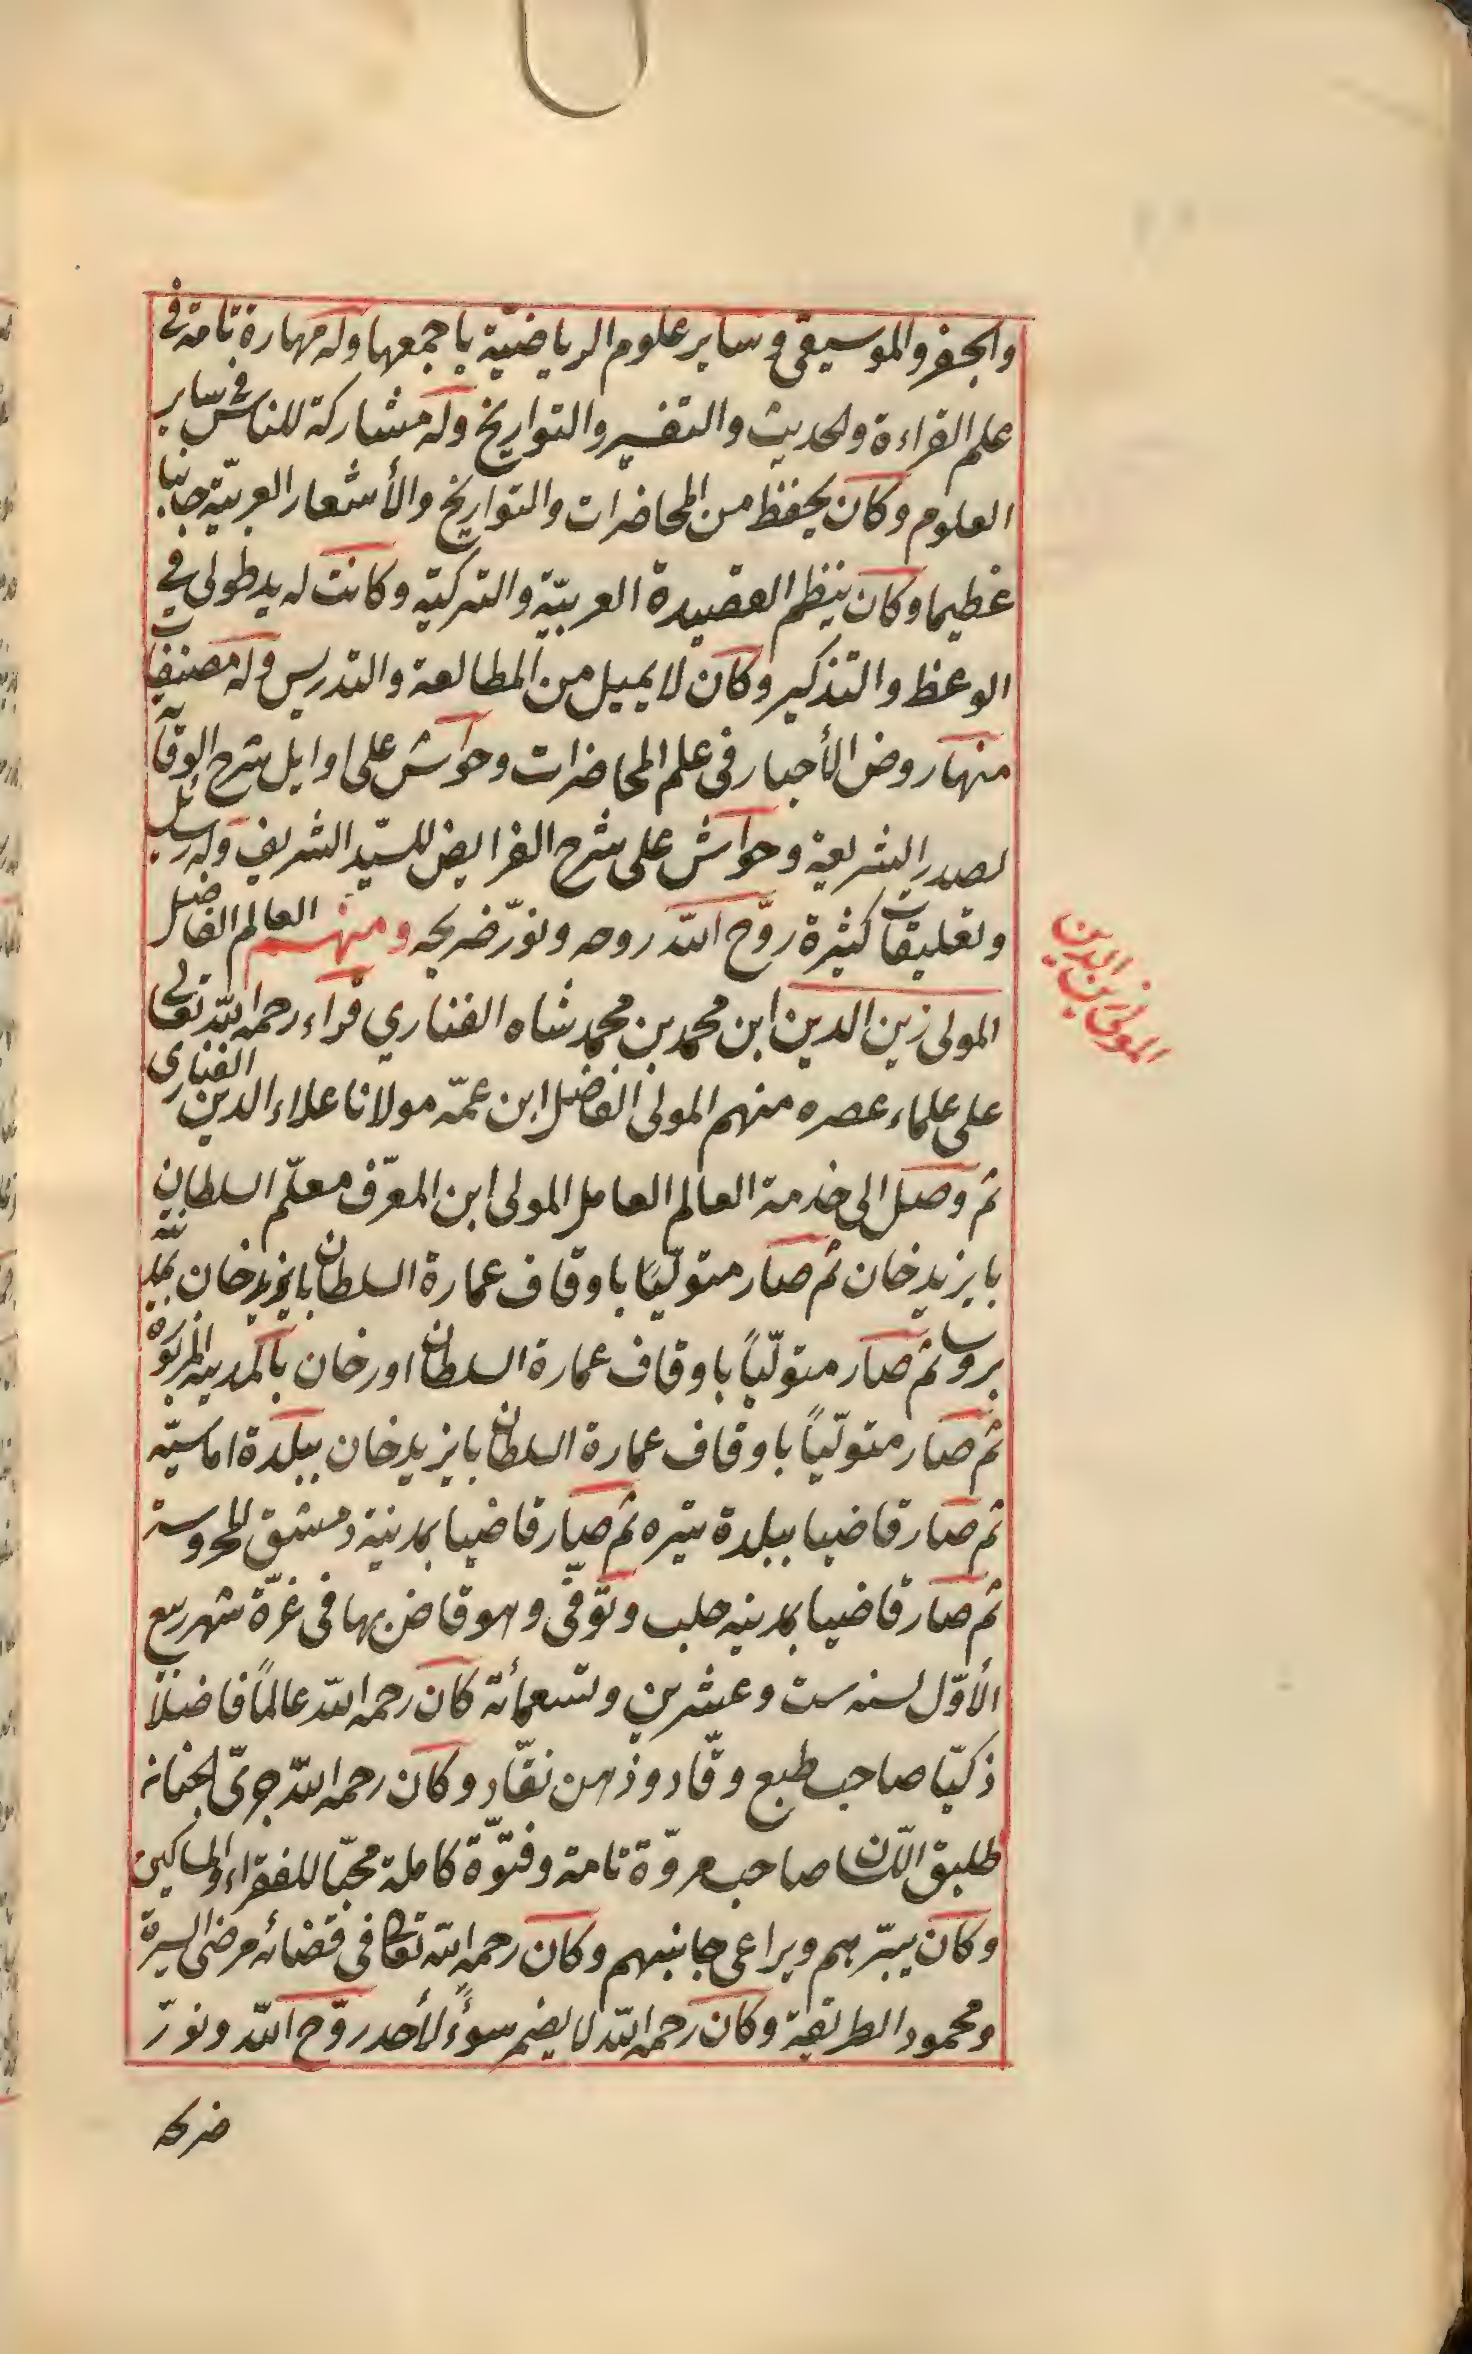 والجفر والموسيقى و سایر علوم الریاضیّة باجمعها وله مهارة تامة فی
علم القراءة والحدیث والتفسیر والتواریخ وله مشاركة للناس فی سایر
العلوم وكان یحفظ من المحاضرات والتواریخ والأشعار العربیّة جانبا
عظیما وكان ینظم القصیدة العربیّة والتركیّه وكانت له ید طولی فی
الوعظ والتذكیر وكان لا یمیل من المطالعة والتدریس وله مصنفات
منها روض الأخبار فی علم المحاضرات وحواش علی اوایل شرح الوقایة
لصدر الشریعة وحواش علی شرح الفرایض للسیّد الشریف وله رسایل
وتعلیقات كثیرة روّح الله روحه ونوّر ضریحه ومنهم العالم الفاضل
المولی زین الدین
المولی زین الدین ابن محمد بن محمد شاه الفناري قراء رحمه الله تعالی
علی علماء عصره منهم المولی الفاضل ابن عمّه مولانا علاء الدین الفناری
ثم وصل الی خدمة العالم العامل المولی ابن المعرّف معلّم السلطان
بایزید خان ثم صار متولّیًا باوقاف عمارة السلطان بایزید خان بمدینة
بروسا ثم صار متولّیًا باوقاف عمارة السلطان اورخان بالمدینة المزبورة
ثم صار متولّیًا باوقاف عمارة السلطان بایزید خان ببلدة اماسیّه
ثم صار قاضیا ببلدة تیره ثم صار قاضیا بمدینة دمشق المحروسة
ثم صار قاضیا بمدینه حلب وتوّفّی وهو قاض بها فی غرّة شهر ربیع
الأوّل لسنه ست وعشرین وتسعمأئة كان رحمه الله عالمًا فاضلا
ذكیّا صاحب طبع وقّاد وذهن نقّاد وكان رحمه الله جرئ الجنانه
طلیق اللسان صاحب مروّة تامة وفتوّة كاملة محبّا للفقراء والمساكین
وكان یبّرهم ویراعی جانبهم وكان رحمه الله تعالی فی قضائه مرضی السیرة
ومحمود الطریقة وكان رحمه الله لا یضم سوءً لأحد روّح الله ونورّ
ضریحه